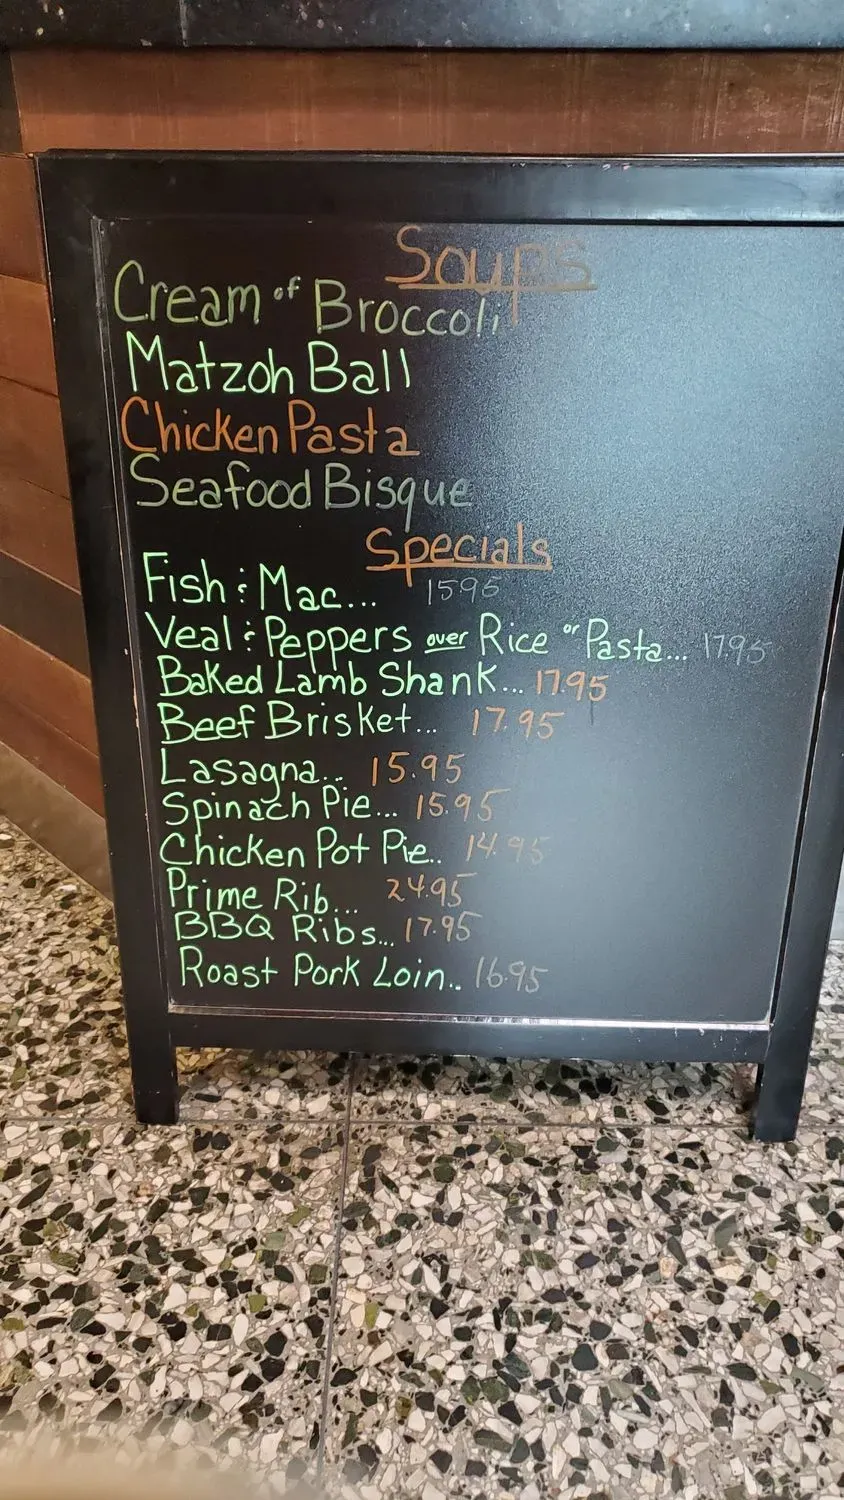 Soups
Cream of Broccoli
Matzoh Ball
Chicken Pasta
Seafood Bisque
Specials
Fish & Mac... 1595
Veal & Peppers over Rice or Pasta... 17.95
Baked Lamb Shank... 17.95
Beef Brisket... 17.95
Lasagna... 15.95
Spinach Pie... 15.95
Chicken Pot Pie.. 14.95
Prime Rib... 24.95
BBQ Ribs... 17.95
Roast Pork Loin.. 16.95